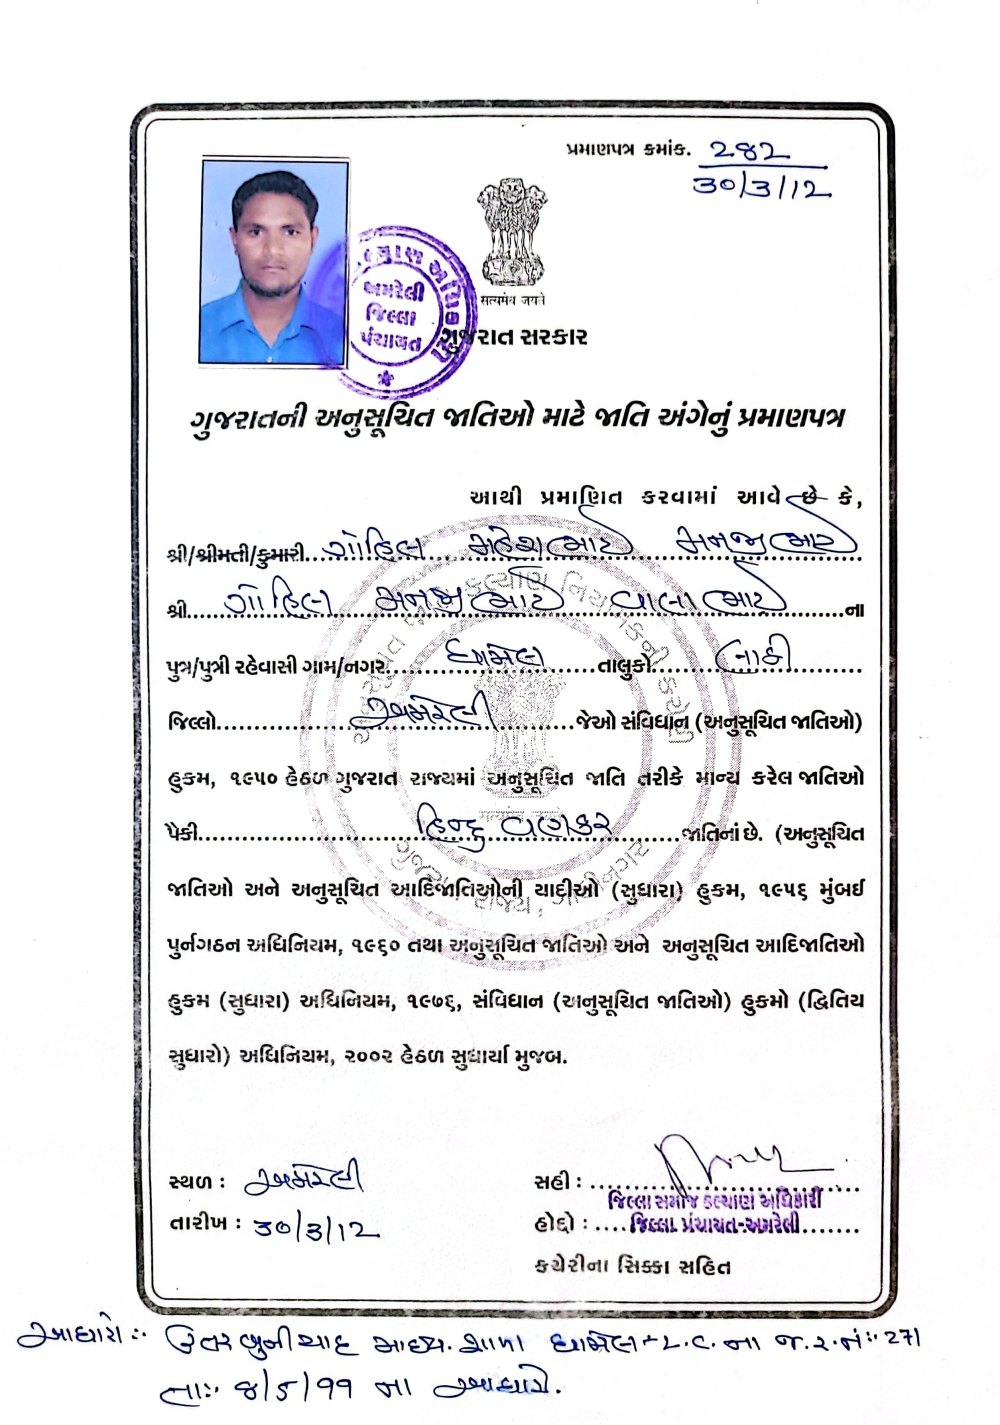 પ્રમાણપત્ર ક્રમાંક. ૨૪૨
૩૦/૩/૧૨
પ્રમાણ અધિકારી
અમરેલી
જિલ્લા
પંચાયત
सत्यमेव जयते
ગુજરાત સરકાર
ગુજરાતની અનુસૂચિત જાતિઓ માટે જાતિ અંગેનું પ્રમાણપત્ર
આથી પ્રમાણિત કરવામાં આવે છે કે,
શ્રી/શ્રીમતી/કુમારી...ગોહિલ મહેશભાઈ મનજીભાઈ
શ્રી...ગોહિલ મનજીભાઈ વાલાભાઈ...ના
પુત્ર/પુત્રી રહેવાસી ગામ/નગર...ધામેલ...તાલુકો...લાઠી
જિલ્લો...અમરેલી...જેઓ સંવિધાન (અનુસૂચિત જાતિઓ)
હુકમ, ૧૯૫૦ હેઠળ ગુજરાત રાજ્યમાં અનુસૂચિત જાતિ તરીકે માન્ય કરેલ જાતિઓ
પૈકી...હિન્દુ વણકર...જાતિનાં છે. (અનુસૂચિત
જાતિઓ અને અનુસૂચિત આદિજાતિઓની યાદીઓ (સુધારા) હુકમ, ૧૯૫૬ મુંબઈ
પુર્નગઠન અધિનિયમ, ૧૯૬૦ તથા અનુસૂચિત જાતિઓ અને અનુસૂચિત આદિજાતિઓ
હુકમ (સુધારા) અધિનિયમ, ૧૯૭૬, સંવિધાન (અનુસૂચિત જાતિઓ) હુકમો (દ્વિતિય
સુધારો) અધિનિયમ, ૨૦૦૨ હેઠળ સુધાર્યા મુજબ.
સ્થળ : અમરેલી
તારીખ : ૩૦/૩/૧૨
સહી :
જિલ્લા સમાજ કલ્યાણ અધિકારી
હોદ્દો : ....જિલ્લા પંચાયત-અમરેલી
કચેરીના સિક્કા સહિત
આધારો :- ઉત્તર બુનીયાદ માધ્ય. શાળા ધામેલ - L.C. ના જ.ર.નં :- 271
તા :- ૪/૬/૧૧ ના આધારે.